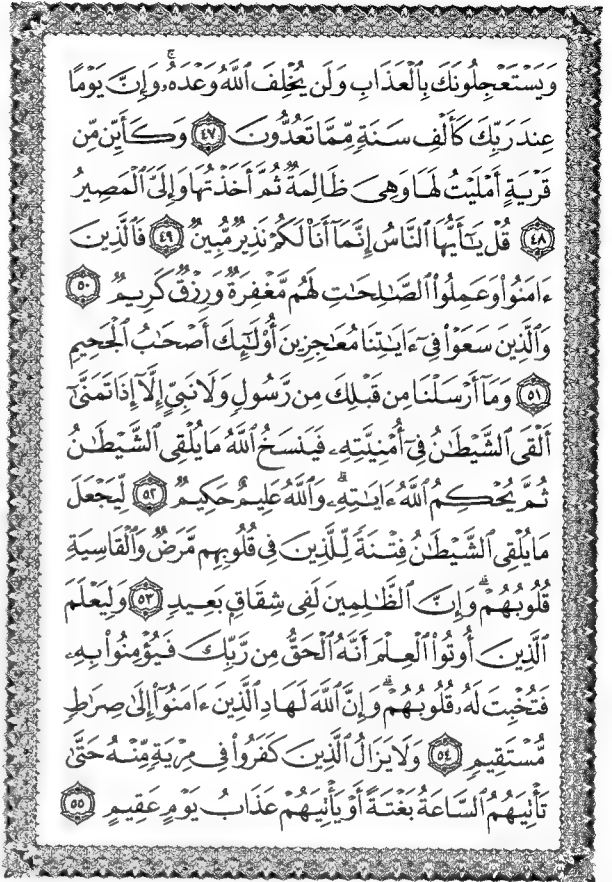 وَيَسْتَعْجِلُونَكَ بِٱلْعَذَابِ وَلَن يُخْلِفَ ٱللَّهُ وَعْدَهُۥۚ وَإِنَّ يَوْمًا
عِندَ رَبِّكَ كَأَلْفِ سَنَةٍ مِّمَّا تَعُدُّونَ ٤٧ وَكَأَيِّن مِّن
قَرْيَةٍ أَمْلَيْتُ لَهَا وَهِىَ ظَالِمَةٌ ثُمَّ أَخَذْتُهَا وَإِلَىَّ ٱلْمَصِيرُ
٤٨ قُلْ يَـٰٓأَيُّهَا ٱلنَّاسُ إِنَّمَآ أَنَا۠ لَكُمْ نَذِيرٌ مُّبِينٌ ٤٩ فَٱلَّذِينَ
ءَامَنُوا۟ وَعَمِلُوا۟ ٱلصَّـٰلِحَـٰتِ لَهُم مَّغْفِرَةٌ وَرِزْقٌ كَرِيمٌ ٥٠
وَٱلَّذِينَ سَعَوْا۟ فِىٓ ءَايَـٰتِنَا مُعَـٰجِزِينَ أُو۟لَـٰٓئِكَ أَصْحَـٰبُ ٱلْجَحِيمِ
٥١ وَمَآ أَرْسَلْنَا مِن قَبْلِكَ مِن رَّسُولٍ وَلَا نَبِىٍّ إِلَّآ إِذَا تَمَنَّىٰٓ
أَلْقَى ٱلشَّيْطَـٰنُ فِىٓ أُمْنِيَّتِهِۦ فَيَنسَخُ ٱللَّهُ مَا يُلْقِى ٱلشَّيْطَـٰنُ
ثُمَّ يُحْكِمُ ٱللَّهُ ءَايَـٰتِهِۦۗ وَٱللَّهُ عَلِيمٌ حَكِيمٌ ٥٢ لِّيَجْعَلَ
مَا يُلْقِى ٱلشَّيْطَـٰنُ فِتْنَةً لِّلَّذِينَ فِى قُلُوبِهِم مَّرَضٌ وَٱلْقَاسِيَةِ
قُلُوبُهُمْۗ وَإِنَّ ٱلظَّـٰلِمِينَ لَفِى شِقَاقٍۭ بَعِيدٍ ٥٣ وَلِيَعْلَمَ
ٱلَّذِينَ أُوتُوا۟ ٱلْعِلْمَ أَنَّهُ ٱلْحَقُّ مِن رَّبِّكَ فَيُؤْمِنُوا۟ بِهِۦ
فَتُخْبِتَ لَهُۥ قُلُوبُهُمْۗ وَإِنَّ ٱللَّهَ لَهَادِ ٱلَّذِينَ ءَامَنُوٓا۟ إِلَىٰ صِرَٰطٍ
مُّسْتَقِيمٍ ٥٤ وَلَا يَزَالُ ٱلَّذِينَ كَفَرُوا۟ فِى مِرْيَةٍ مِّنْهُ حَتَّىٰ
تَأْتِيَهُمُ ٱلسَّاعَةُ بَغْتَةً أَوْ يَأْتِيَهُمْ عَذَابُ يَوْمٍ عَقِيمٍ ٥٥